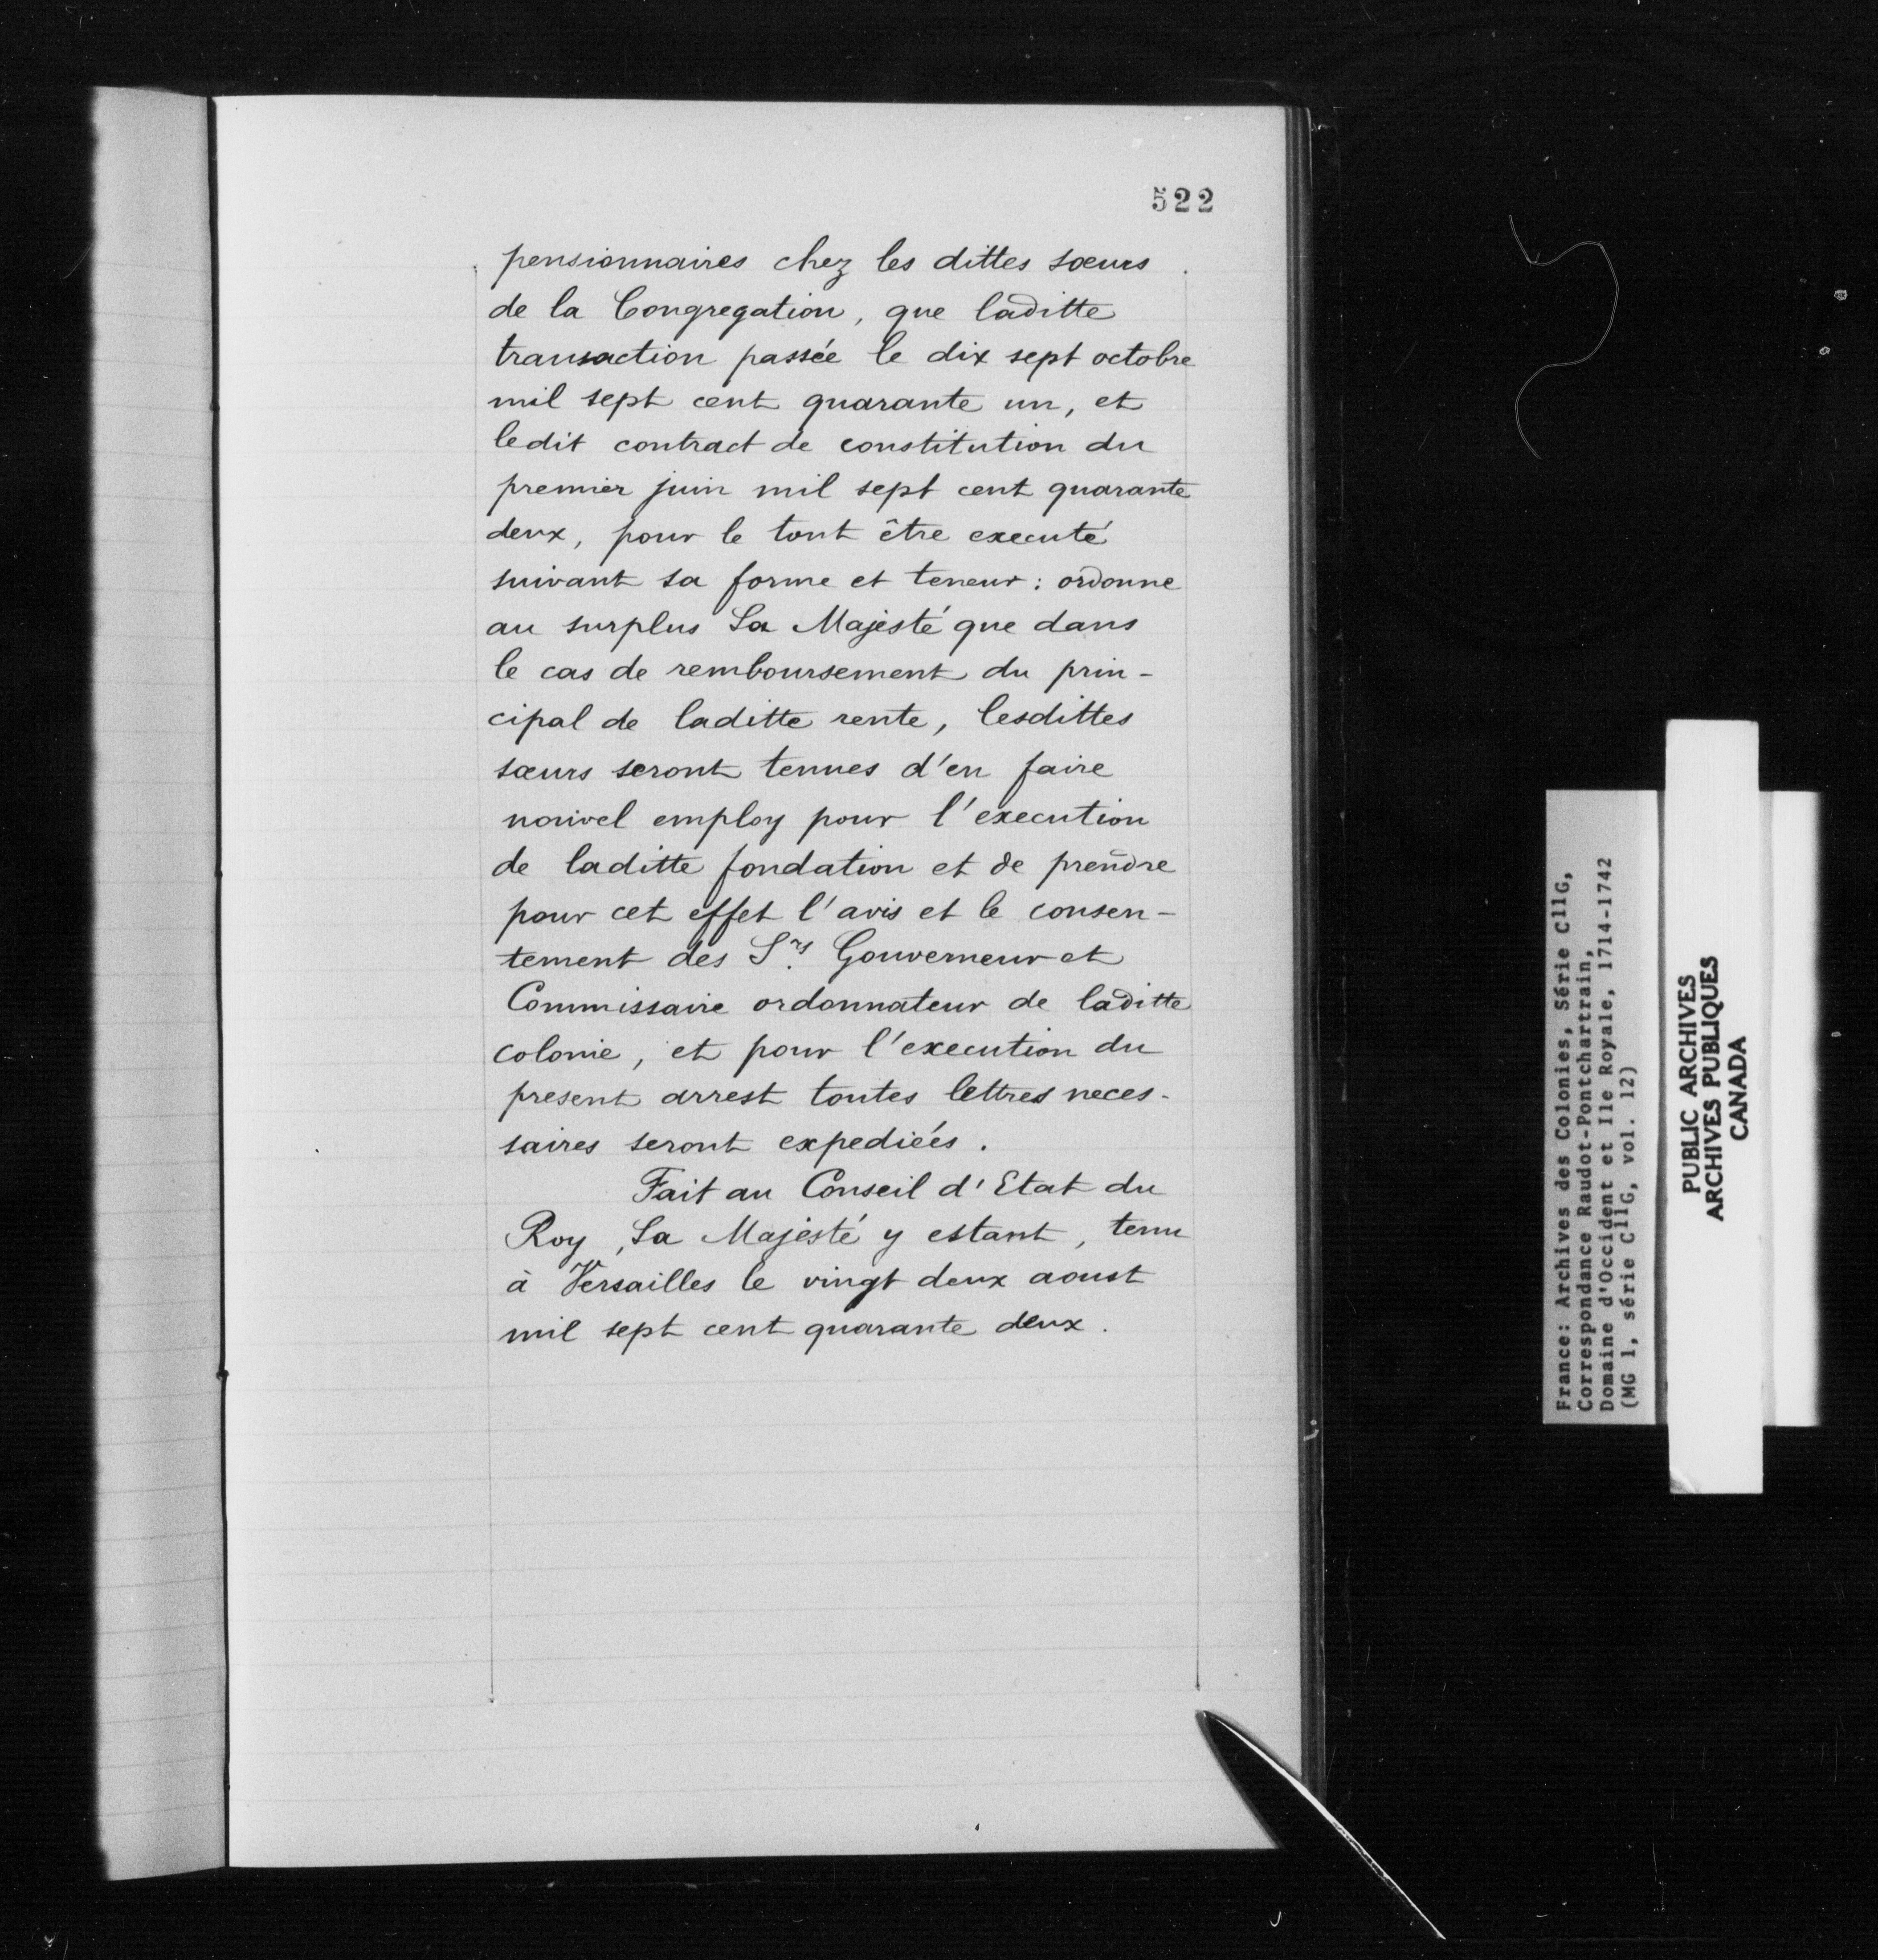 522
pensionnaires chez les dittes sœurs
de la Congregation, que laditte
transaction passée le dix sept octobre
mil sept cent quarante un, et
ledit contract de constitution du
premier juin mil sept cent quarante
deux, pour le tout être executé
suivant sa forme et teneur : ordonne
au surplus Sa Majesté que dans
le cas de remboursement du prin-
cipal de laditte rente, lesdittes
sœurs seront tenues d'en faire
nouvel employ pour l'execution
de laditte fondation et de prendre
pour cet effet l'avis et le consen-
tement des Srs. Gouverneur et
Commissaire ordonnateur de laditte
colonie, et pour l'execution du
present arrest toutes lettres neces-
saires seront expediées.
Fait au Conseil d'Etat du
Roy, Sa Majesté y estant, tenu
à Versailles le vingt deux aoust
mil sept cent quarante deux.
France: Archives des Colonies, Série C11G,
Correspondance Raudot-Pontchartrain,
Domaine d'Occident et Ile Royale, 1714-1742
(MG 1, série C11G, vol. 12)
PUBLIC ARCHIVES
ARCHIVES PUBLIQUES
CANADA